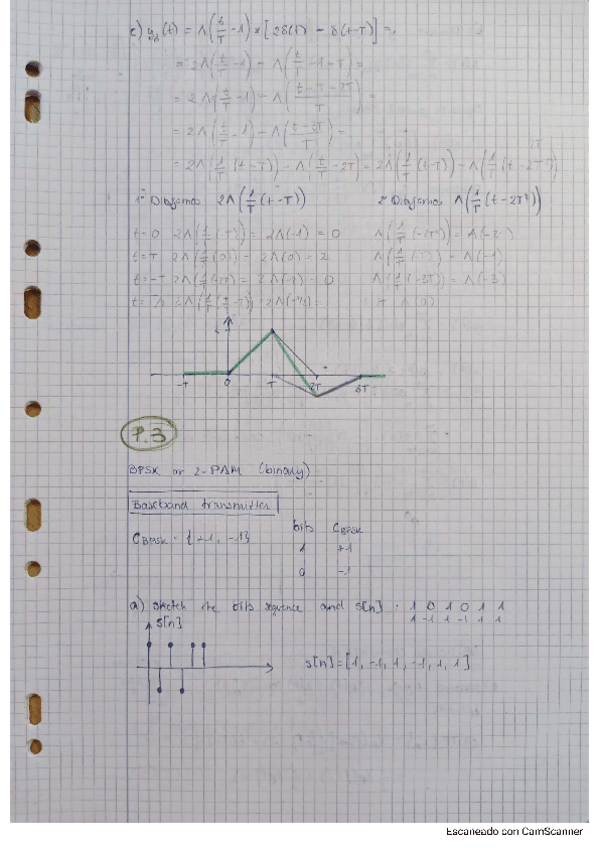 c) y_d(t) = Λ(t/T - 1) * [2δ(t) - δ(t-T)] =
= 2Λ(t/T - 1) - Λ(t/T - 1 - T) =
= 2Λ(t/T - 1) - Λ(
= 2Λ(t/T - 1) - Λ((t-2T)/T) =
= 2Λ(1/T (t-T)) - Λ(t/T - 2T) = 2Λ(1/T (t-T)) - Λ(1/T (t-
1º Diagrama 2Λ(1/T (t-T)) 2º Diagrama Λ(1/T (t-2T
t=0 2Λ(1/T(-T)) = 2Λ(-1) = 0 Λ(1/T(-2T)) = Λ(-2)
t=T 2Λ(1/T(0)) = 2Λ(0) = 2 Λ(1/T = Λ(-1)
t=-T 2Λ(1/T = 2Λ(-2) = 0 Λ(1/T = Λ(-3)
Λ(0)
-T 0 T 2T 3T
P.3
BPSK or 2-PAM (binary)
Baseband transmitter
bits C_BPSK
C_BPSK = {+1, -1}
1 +1
0 -1
a) Sketch the bits sequence and s[n] 1 0 1 0 1 1
1 -1 1 -1 1 1
s[n]
s[n] = [1, -1, 1, -1, 1, 1]
Escaneado con CamScanner